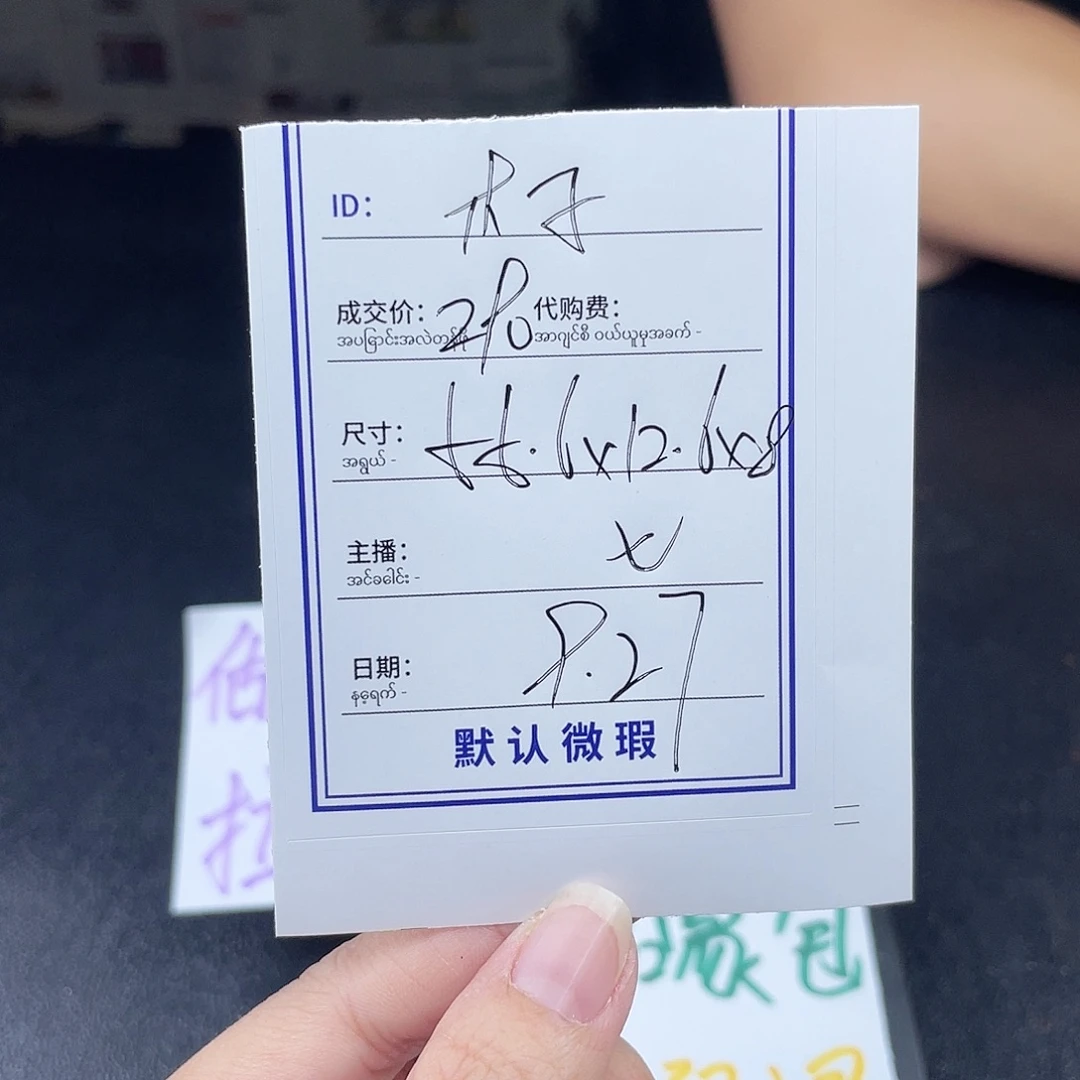 ID: 木子
成交价: 280 代购费:
အပြောင်းအလဲတန်ဖိုး အာဂျင်စီ ဝယ်ယူမှုအခက် -
尺寸: 56.6x12.6x8
အရွယ် -
主播: 七
အင်ခေါင်း -
日期: 8.27
နေ့ရက် -
默认微瑕